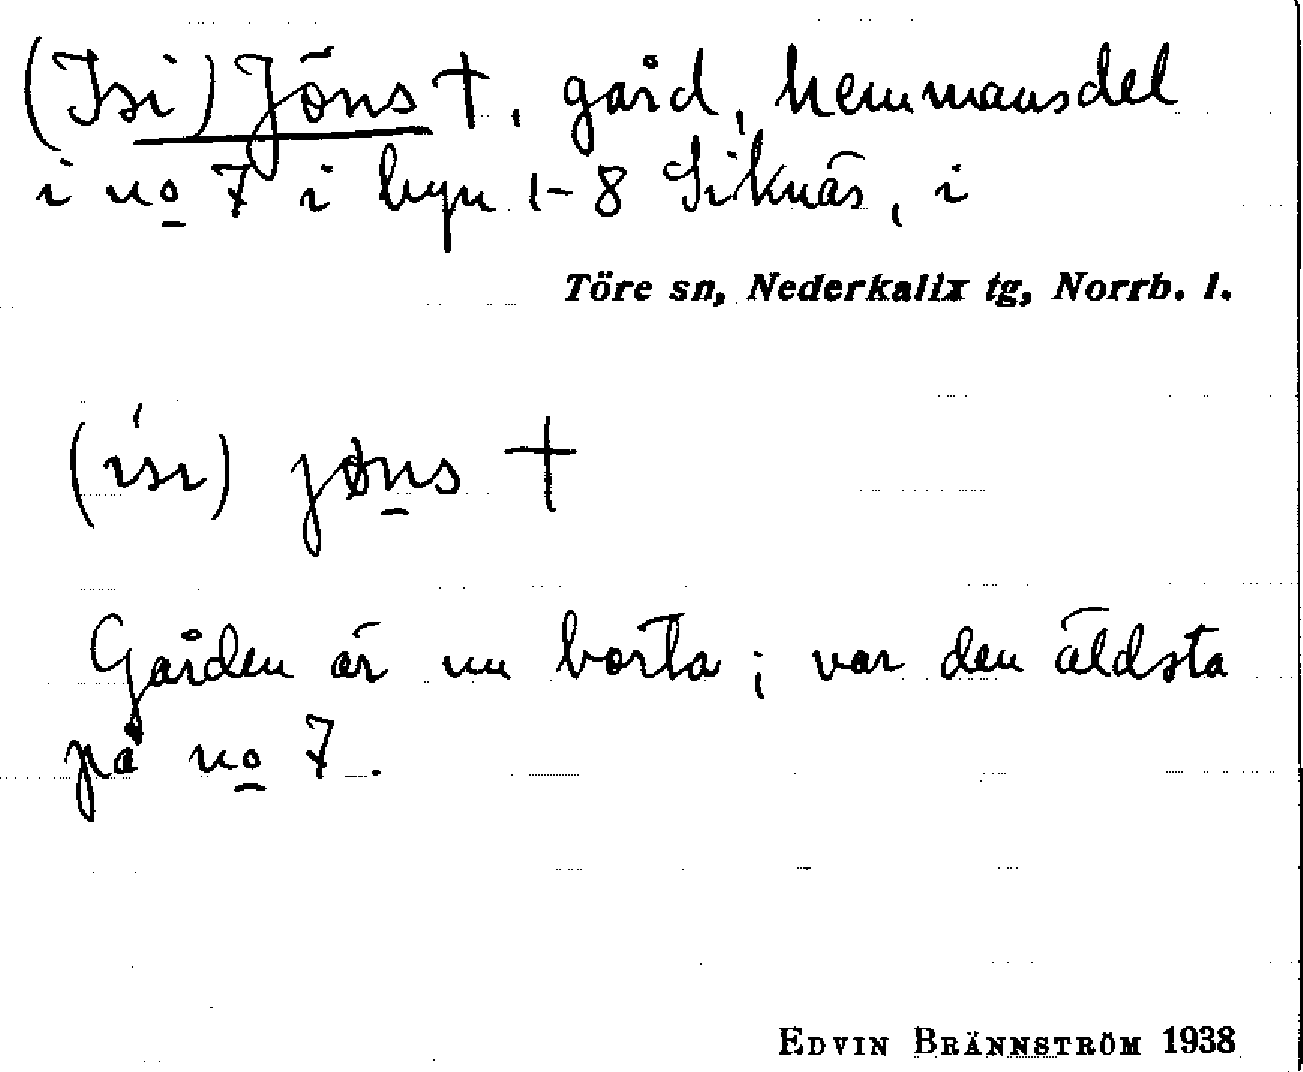 (Isi) Jöns †, gård, hemmansdel
i no 7 i byn 1-8 Siknäs, i
Töre sn, Nederkalix tg, Norrb. l.
(ísı) jøns †
Gården är nu borta; var den äldsta
på no 7.
EDVIN BRÄNNSTRÖM 1938